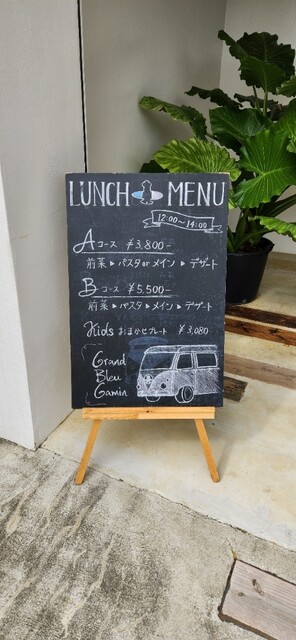 LUNCH MENU
12:00〜14:00
Aコース ¥3,800-
前菜▶パスタorメイン▶デザート
Bコース ¥5,500-
前菜▶パスタ▶メイン▶デザート
Kids おまかせプレート ¥3,080
Grand
Bleu
Gamin